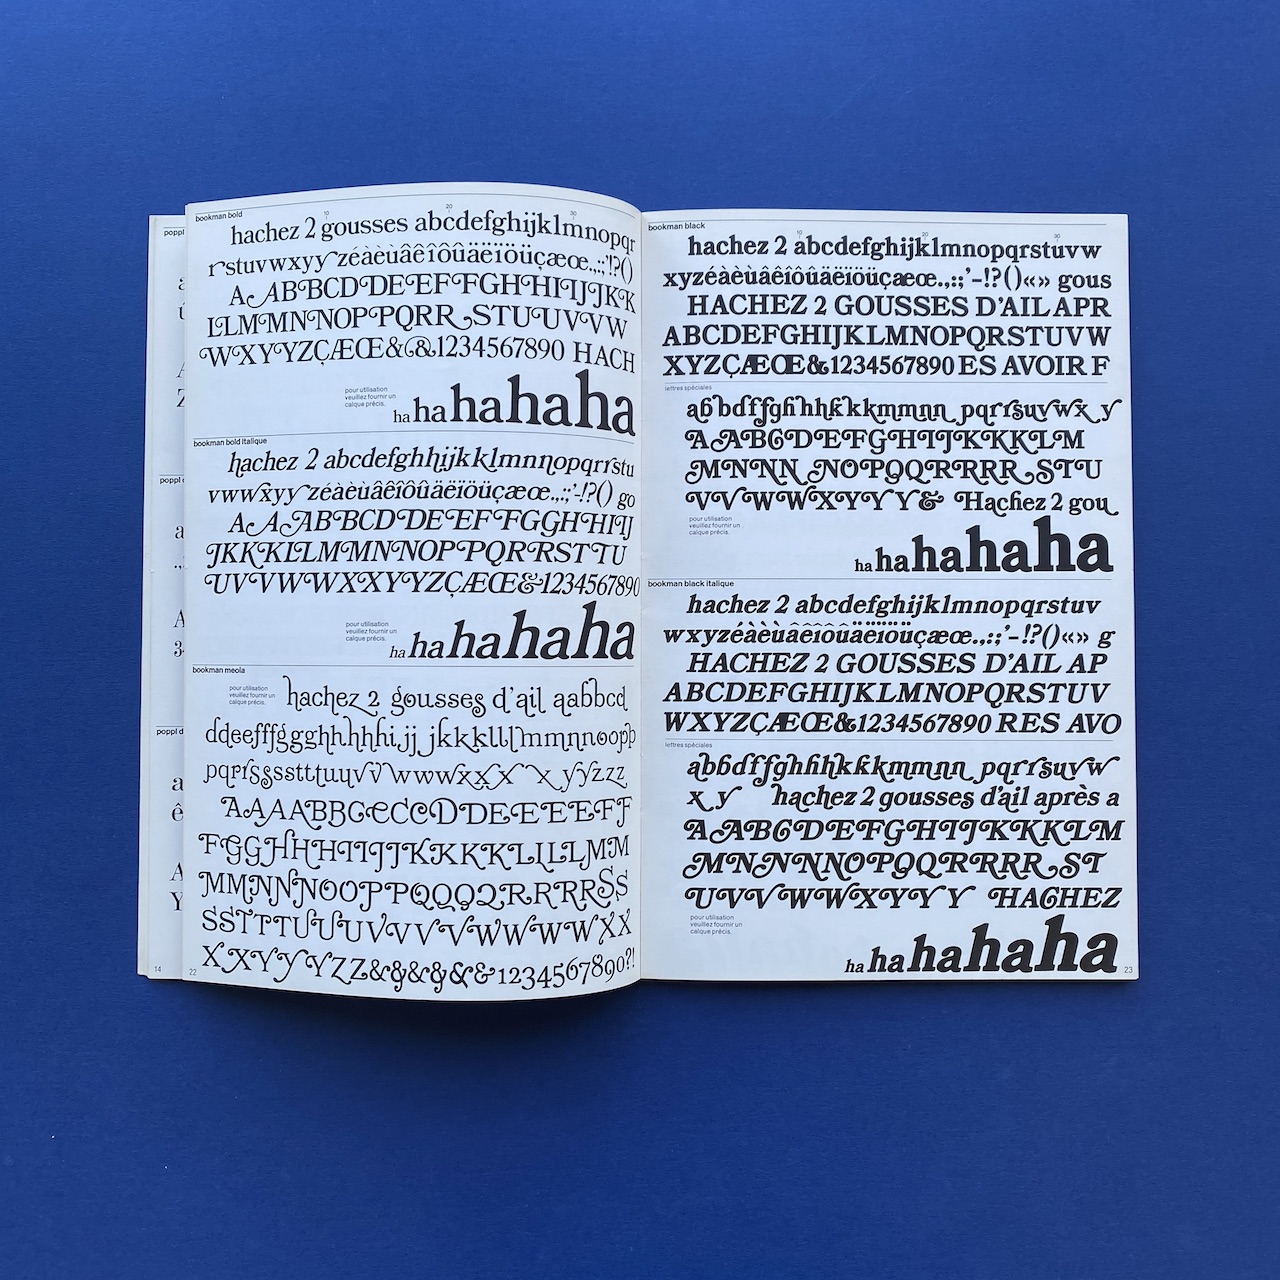 poppl
poppl d
14
bookman bold
10 20 30
hachez 2 gousses abcdefghijklmnopqr
rstuvwxyy zéàèùâêîôûäëïöüçæœ.,:;'!?()
AAABBCDDEEFFGHHIIJJKK
LLMMNNOPPQRRSTUUVVW
WXYYZÇÆŒ&&1234567890 HACH
pour utilisation
veuillez fournir un
calque précis.
ha ha ha ha ha
bookman bold italique
hachez 2 abcdefghhijkklmnnopqrrstu
vwwxyy zéàèùâêîôûäëïöüçæœ.,:;'-!?() go
AAABBCDDEEFFGGHHIIJ
JKKKLLMMNNOPPQRRSTTU
UVVWWXXYYZÇÆŒ&1234567890
pour utilisation
veuillez fournir un
calque précis.
ha ha ha ha ha
bookman meola
pour utilisation
veuillez fournir un
calque précis.
hachez 2 gousses d'ail aabbcd
ddeefffggghhhhhijjj jkkklllmmnnoopp
AAAABBCCCCDDEEEEFF
22
bookman black
10 20 30
hachez 2 abcdefghijklmnopqrstuvw
xyzéàèùâêîôûäëïöüçæœ.,:;'-!?()«» gous
HACHEZ 2 GOUSSES D'AIL APR
ABCDEFGHIJKLMNOPQRSTUVW
XYZÇÆŒ&1234567890 ES AVOIR F
lettres spéciales
abbdffghhhkkkmmnn pqrrsuvwxy
AAABCDEFGHIJKKKLM
MNNN NOPQQRRRR STU
VVWWXYYY& Hachez 2 gou
pour utilisation
veuillez fournir un
calque précis.
ha ha ha ha ha
bookman black italique
hachez 2 abcdefghijklmnopqrstuv
wxyzéàèùâêîôûäëïöüçæœ.,:;'-!?()«» g
HACHEZ 2 GOUSSES D'AIL AP
ABCDEFGHIJKLMNOPQRSTUV
WXYZÇÆŒ&1234567890 RES AVO
lettres spéciales
abbdffghhhkkkmmnn pqrrsuvw
x y hachez 2 gousses d'ail après a
AAABCDEFGHIJKKKLM
MNNNNOPQQRRRR ST
UVVWWXYYY HACHEZ
pour utilisation
veuillez fournir un
calque précis.
ha ha ha ha ha
23